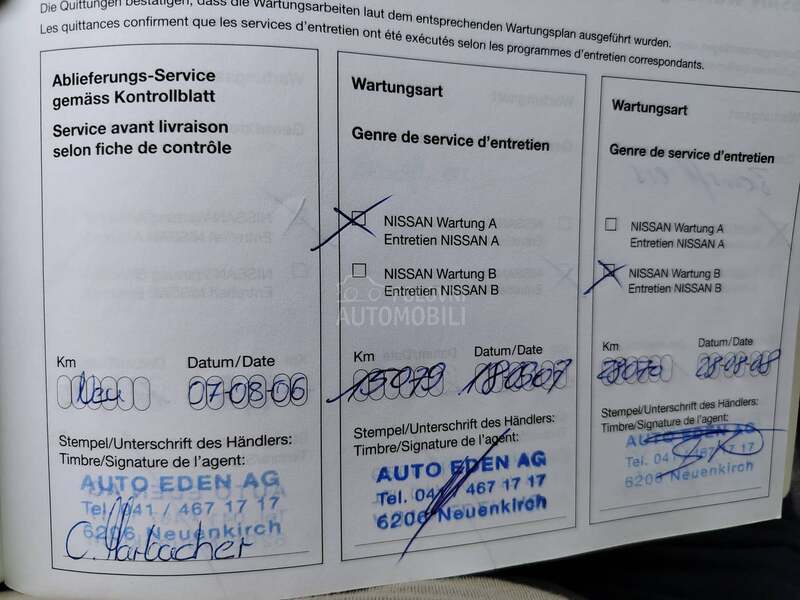 Die Quittungen bestätigen, dass die Wartungsarbeiten laut dem entsprechenden Wartungsplan ausgeführt wurden.
Les quittances confirment que les services d'entretien ont été exécutés selon les programmes d'entretien correspondants.
Ablieferungs-Service
gemäss Kontrollblatt
Service avant livraison
selon fiche de contrôle
Km
Datum/Date
Neu
07-08-06
Stempel/Unterschrift des Händlers:
Timbre/Signature de l'agent:
AUTO EDEN AG
Tel. 041 / 467 17 17
6206 Neuenkirch
C. Marbacher
Wartungsart
Genre de service d'entretien
NISSAN Wartung A
Entretien NISSAN A
NISSAN Wartung B
Entretien NISSAN B
POLOVNI
AUTOMOBILI
Km
Datum/Date
15079
Stempel/Unterschrift des Händlers:
Timbre/Signature de l'agent:
AUTO EDEN AG
Tel. 041 / 467 17 17
6206 Neuenkirch
Wartungsart
Genre de service d'entretien
NISSAN Wartung A
Entretien NISSAN A
NISSAN Wartung B
Entretien NISSAN B
Km
Datum/Date
28-08-08
Stempel/Unterschrift des Händlers:
Timbre/Signature de l'agent:
AUTO EDEN AG
Tel. 041 / 467 17 17
6206 Neuenkirch